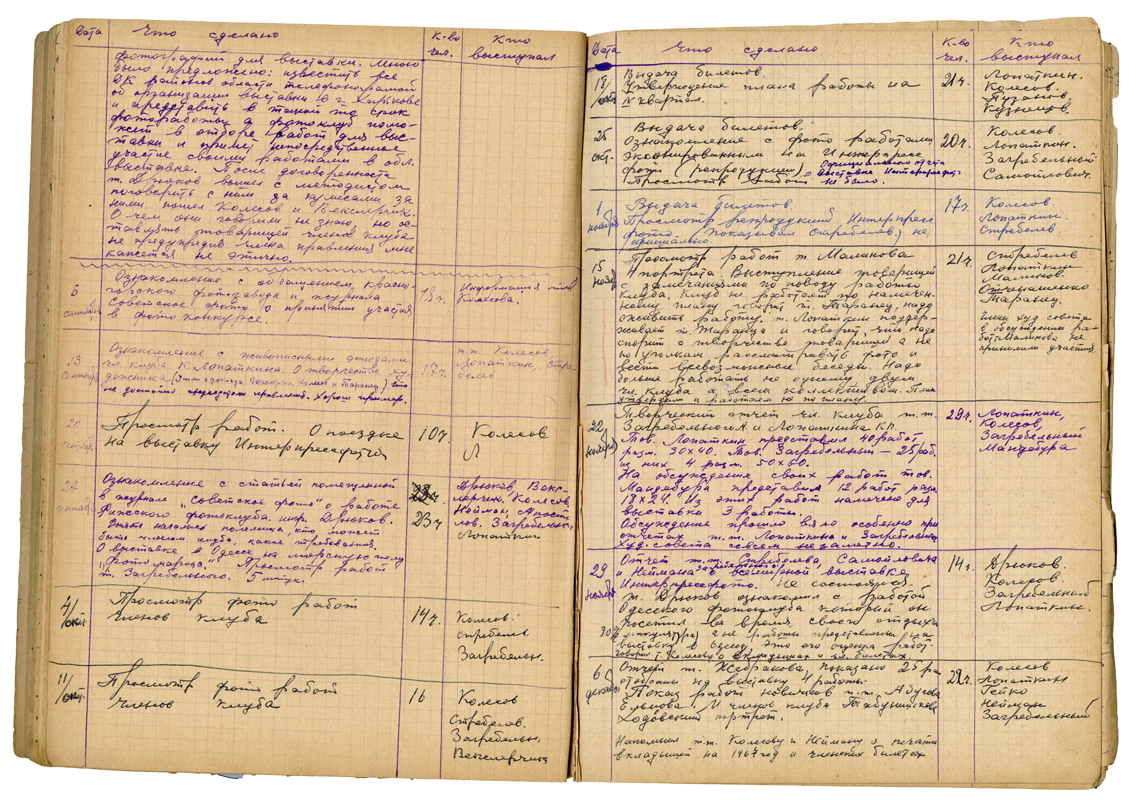 Дата Что сделано К-во чел. Кто выступал
фотографий для выставки. Много
было предложено: известить все
ДК районов области телефонограммой
об организации выставки в г. Харькове
и представить в такой то срок
фотоработы а фотоклуб помо-
жет в отборе работ для выс-
тавки и примет непосредственное
участие своими работами в обл.
выставке. После договоренности
т. Дрюков вышел с методистом
поговорить с ним за кулисами за
ними пошел Колесов и Векслерчик.
О чем они говорили не знаю но ос-
тавлять товарищей членов клуба
не предупредив члена правления мне
кажется не этично.
6 сентября
Ознакомление с обращением Красно-
горского фотозавода и журнала
Советское фото о принятии участия
в фото конкурсе.
18ч. Информация тов Колесова.
13 сентября
Ознакомление с живописными этюдами
чл. клуба К. Лопаткина. О творчестве ху-
дожника
не достойно председателя правления. Хорош пример.
17ч. т.т. Колесов Лопаткин, Стре-
белев
20 сентябрь
Просмотр работ. О поездке
на выставку Интерпрессфото
10ч. Колесов
Л
27 сентября
Ознакомление с статьей помещенной
в журнале "Советское фото" о работе
Рижского фотоклуба. инф. Дрюков.
Опять началась полемика, кто может
быть членом клуба, какие требования.
О выставке в Одессе на морскую тему
"фотомарина". Просмотр работ
т. Загребельного. 5 штук.
23ч
Дрюков Векс-
лерчик, Колесов
Нейман, Апост-
лов. Загребельн,
Лопаткин
4/окт
Просмотр фото работ
членов клуба
14ч. Колесов.
Стребелев
Загребельн.
11/окт.
Просмотр фото работ
членов клуба
16 Колесов
Стребелев.
Загребельн,
Векслерчик
Дата Что сделано К-во чел. Кто выступал
18/окт
Выдача билетов.
Утверждение плана работы на
IV квартал.
21ч. Лопаткин.
Колесов.
Лузанов
Кузнецов
25 окт.
Выдача билетов.
Ознакомление с фото работами
экспонированными на Интерпресс
фото (репродукции)
Просмотр работ
Официального отчета
о выставке Интерпрессф.
не было.
20ч. Колесов.
Лопаткин.
Загребельный
Самойлович.
1 ноября
Выдача билетов
Просмотр репродукций Интерпресс
фото. (показывал Стребелев) не
официально
17ч. Колесов
Лопаткин.
Стребелев.
15 нояб
Просмотр работ т. Маликова
4 портрета. Выступление товарищей
с замечаниями по поводу работы
клуба, клуб не работает по намечен-
ному плану говорит т. Таранец, надо
оживить работу. т. Лопаткин поддер-
живает т. Таранца и говорит, что надо
спорить о творчестве товарищей а не
по уголкам рассматривать фото и
вести всевозможные беседы. Надо
больше работать не одному двум
чл. клуба а всем коллективом. План
утвердили а работаем не по плану.
21ч. Стребелев
Лопаткин
Маликов.
Отченашенко
Таранец.
Члены худ совета
в обсуждении ра-
бот Маликова не
принимали участия
22 ноября
Творческий отчет чл. клуба т.т.
Загребельного А и Лопаткина К.П.
Тов. Лопаткин представил 40 работ
разм. 30х40. Тов. Загребельный - 25 раб.
из них 4 разм. 50х60.
На обсуждение своих работ тов.
Мандебура представил 12 работ разм
18х24. Из этих работ намечено для
выставки 3 работы.
Обсуждение прошло вяло особенно при
отчетах т.т. Лопаткина и Загребельн
худ. совета совсем незаметно.
29ч. Лопаткин,
Колесов,
Загребельный
Мандебура
29 ноября
Отчет т.т. Стребелева, Самойловича
Неймана о всемирной выставке
Интерпрессфото. Не состоялся.
т. Дрюков ознакомил с работой
Одесского фотоклуба который он
посетил во время своего отдыха
выставку в Одессу. Это его оценка работ
14ч. Дрюков.
Колесов.
Загребельный
Лопаткин.
6 декабря
Отчет т. Жебракова. Показано 25 раб
отобраны на выставку 4 работы.
Показ работ новичков т.т.
Ельцова. И членов клуба
Ходовский портрет.
Напомнил т.т. Колесову и Нейману о печати
вкладышей на 1967 год к членским билетам
22ч. Колесов
Лопаткин
Гейко
Нейман
Загребельный